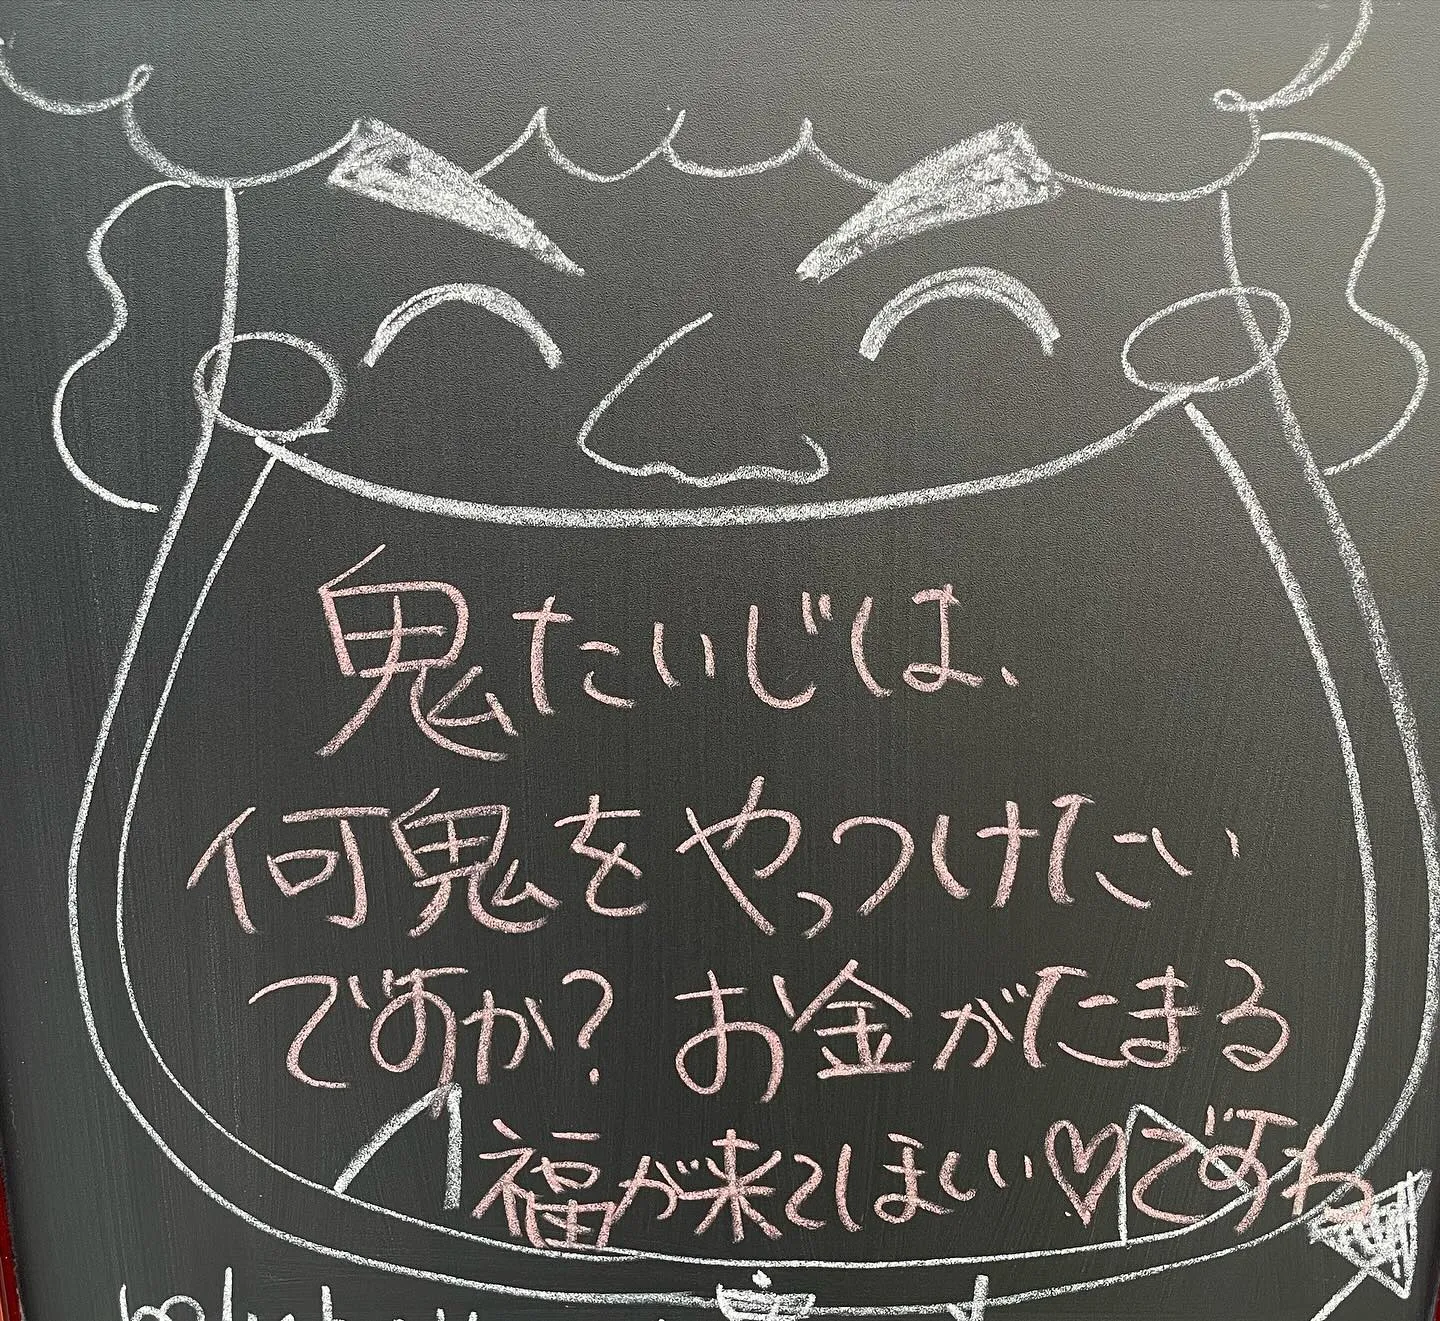 鬼たいじは、
何鬼をやっつけたい
ですか?お金がたまる
福が来てほしい♡ですわ